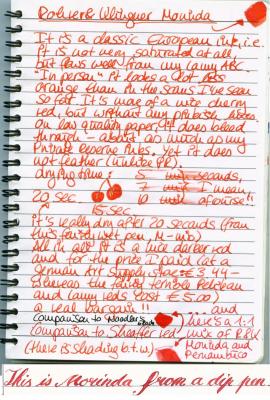 Rohrer & Klingner Morinda
It is a classic European ink, i.e.
it is not very saturated at all,
but flows well from my Lamy ABC.
"In person" it looks a lot less
orange than in the scans I've seen
so far. It's more of a nice cherry
red, but without any pinkish
On low quality paper, it does bleed
through - about as much as my
Private Reserve inks. Yet it does
not feather (unlike PR).
drying time: 5 min seconds,
7 min I mean,
20 sec 10 min of course!
15 sec
It's really dry after 20 seconds (from
this fairly wet pen, M-nib)
All in all it is a nice darker red
and for the price I paid (at a
German art supply store € 3,44 -
whereas the fairly terrible Pelikan
and Lamy reds cost € 5.00)
a real bargain!! and
Comparison to Noodler's here's a 1:1
Comparison to Sheaffer red mix of R&K
(there is shading b.t.w.) Morinda and
Pernambuco
This is Morinda from a dip pen.